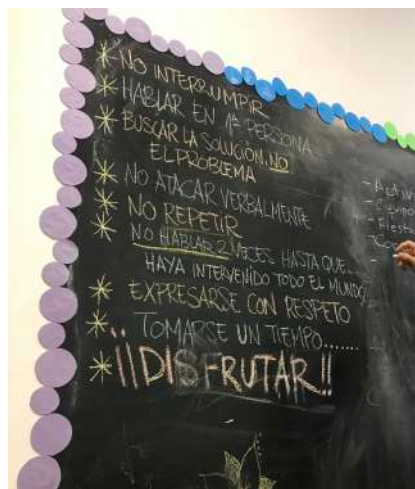 * NO INTERRUMPIR
* HABLAR EN 1ª PERSONA
* BUSCAR LA SOLUCIÓN, NO
EL PROBLEMA
* NO ATACAR VERBALMENTE
* NO REPETIR
* NO HABLAR 2 VECES HASTA QUE...
HAYA INTERVENIDO TODO EL MUNDO
* EXPRESARSE CON RESPETO
* TOMARSE UN TIEMPO.......
* ¡¡DISFRUTAR!!